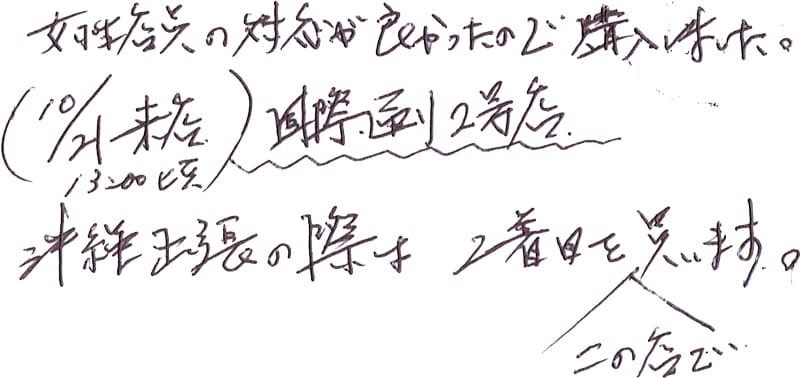 女性店員の対応が良かったので購入しました。
(10/21来店 13:00頃) 国際通り2号店
沖縄出張の際は 2着目を買います。
この店で